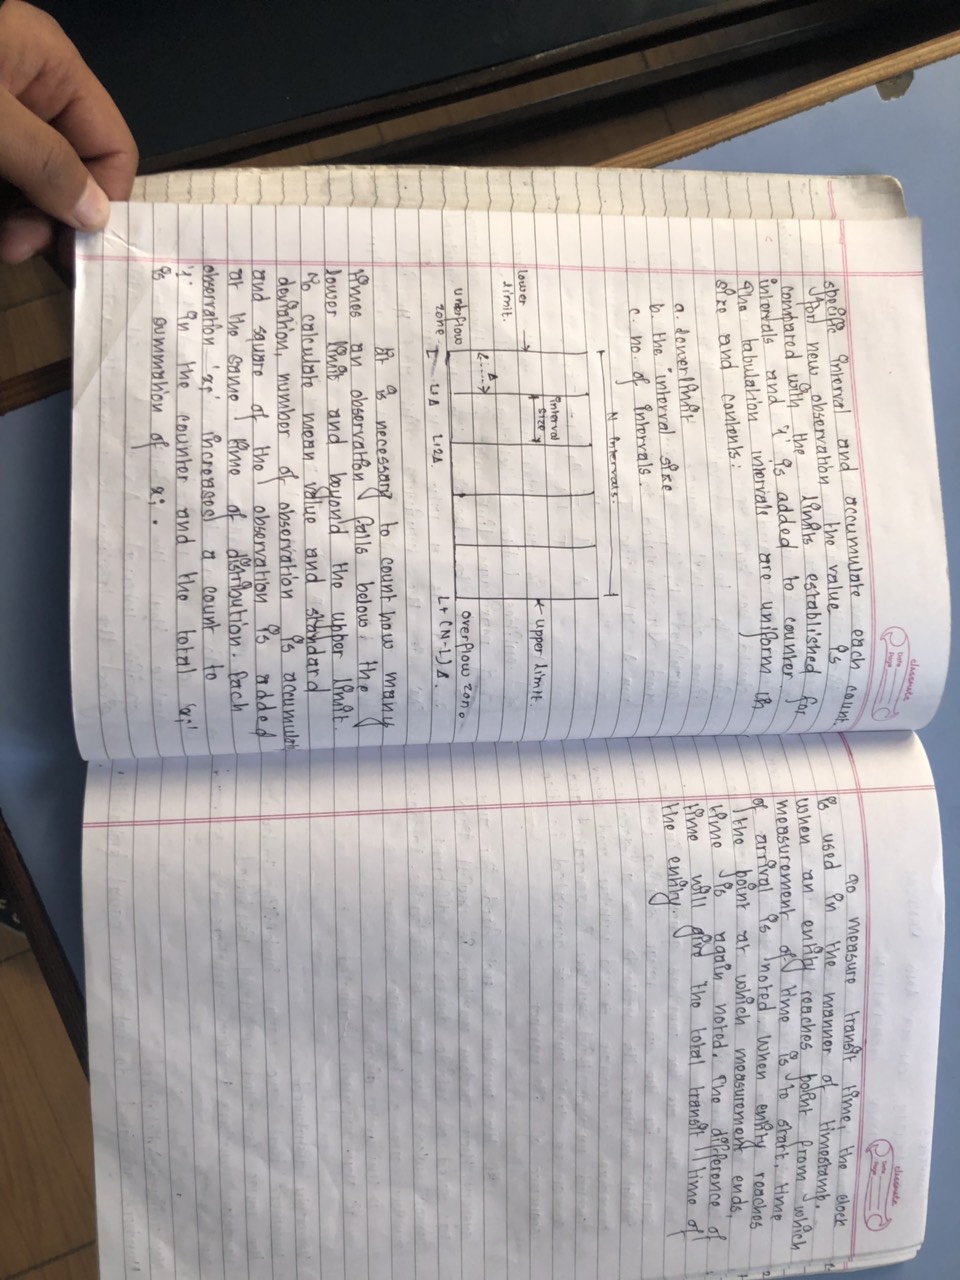 classmate
Date
Page
specific interval and accumulate each count
for new observation the value is
compared with the limits established for
intervals and '1' is added to counter.
The tabulation intervals are uniform in
size and contents:
a. lower limit
b. the interval size
c. no. of intervals.
N intervals.
lower
limit.
interval
size
Δ
upper limit.
underflow
zone
L
L+Δ
L+2Δ.
L+(N-1)Δ.
overflow zone
It is necessary to count how many
times an observation falls below the
lower limit and beyond the upper limit.
To calculate mean value and standard
deviation, number of observation is accumulate
and square of the observation is added
at the same time of distribution. Each
observation 'xi' increased a count to
'1' in the counter and the total 'xi'
is summation of xi.
classmate
Date
Page
To measure transit time, the clock
is used in the manner of timestamp.
When an entity reaches point from which
measurement of time is to start, time
of arrival is noted. When entity reaches
the point at which measurement ends,
time is again noted. The difference of
time will give the total transit time of
the entity.